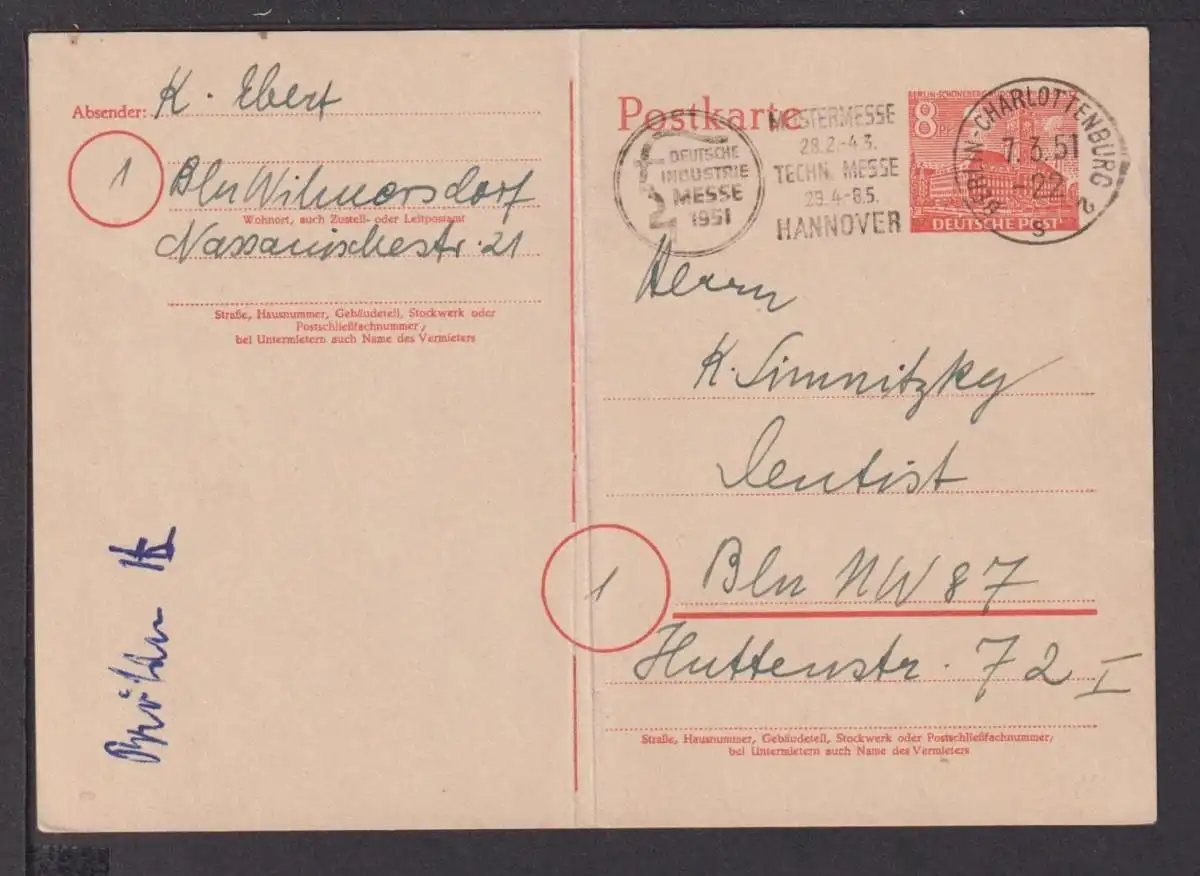 Absender: K. Ebert
1
Bln Wilmersdorf
Wohnort, auch Zustell- oder Leitpostamt
Nassauischestr. 21
Straße, Hausnummer, Gebäudeteil, Stockwerk oder
Postschließfachnummer,
bei Untermietern auch Name des Vermieters
Postkarte
DEUTSCHE
INDUSTRIE
MESSE
1951
MUSTERMESSE
28.2.-4.3.
TECHN. MESSE
29.4.-8.5.
HANNOVER
BERLIN-SCHÖNEBERG
8 PF
DEUTSCHE POST
BERLIN-CHARLOTTENBURG 2
7.3.51
-22
s
Herrn
K. Simnitzky
Dentist
1
Bln NW 87
Huttenstr. 72 I
Straße, Hausnummer, Gebäudeteil, Stockwerk oder Postschließfachnummer,
bei Untermietern auch Name des Vermieters